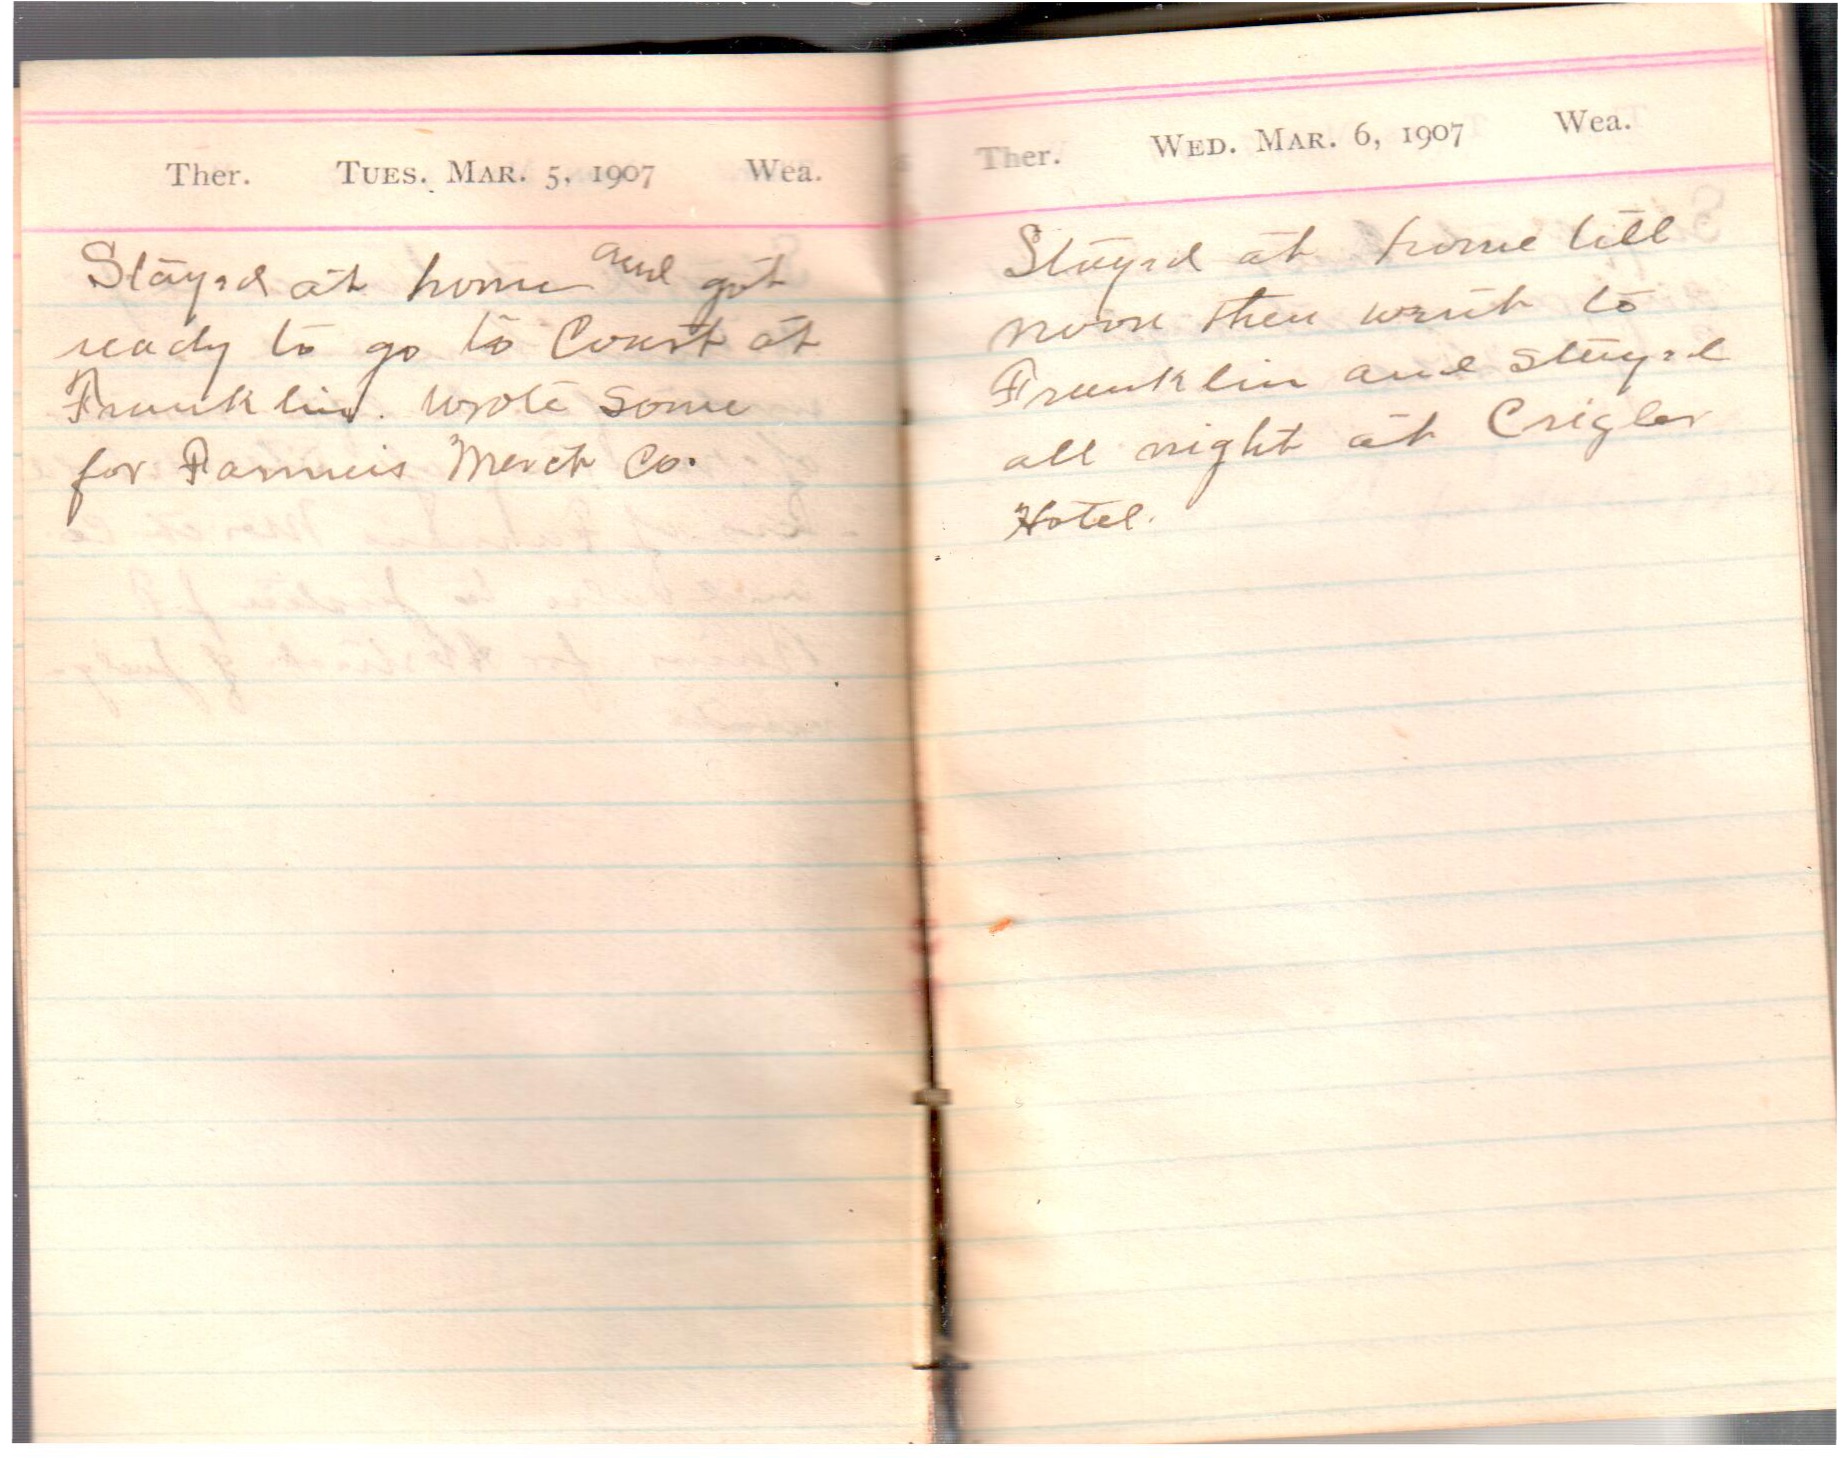 Ther. TUES. MAR. 5, 1907 Wea.
Stayed at home and got
ready to go to Court at
Franklin. wrote some
for Farmers Merch Co.
Ther. WED. MAR. 6, 1907 Wea.
Stayed at home till
noon then went to
Franklin and stayed
all night at Crigler
Hotel.